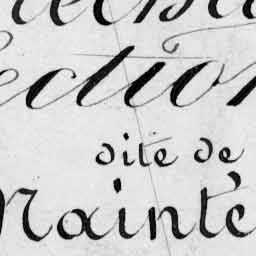 ection
dite de
Mainté